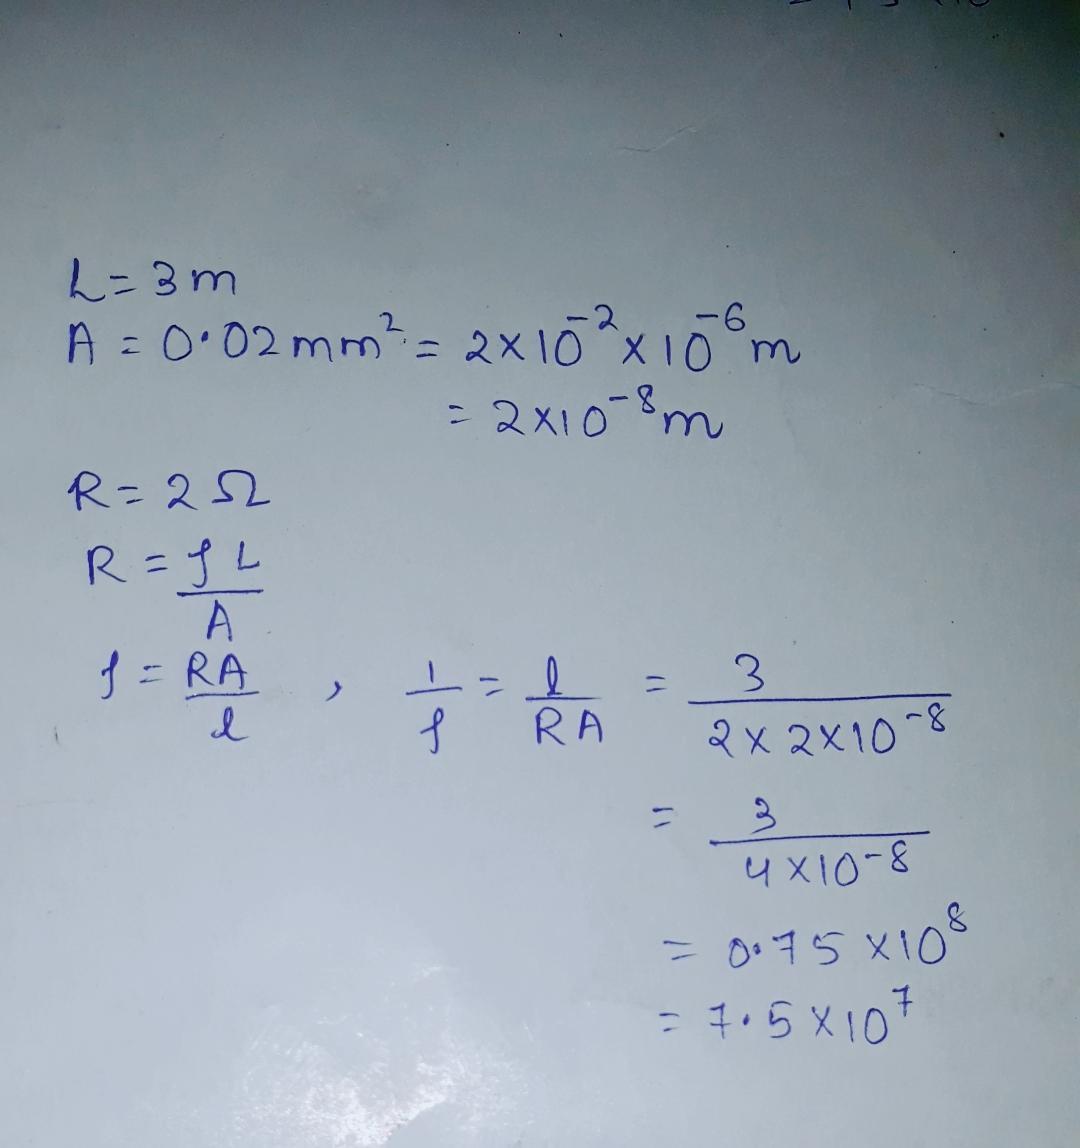 L = 3 m
A = 0.02 mm² = 2 × 10⁻² × 10⁻⁶ m
= 2 × 10⁻⁸ m
R = 2 Ω
R = ρL/A
ρ = RA/l , 1/ρ = l/RA = 3/(2 × 2 × 10⁻⁸)
= 3/(4 × 10⁻⁸)
= 0.75 × 10⁸
= 7.5 × 10⁷